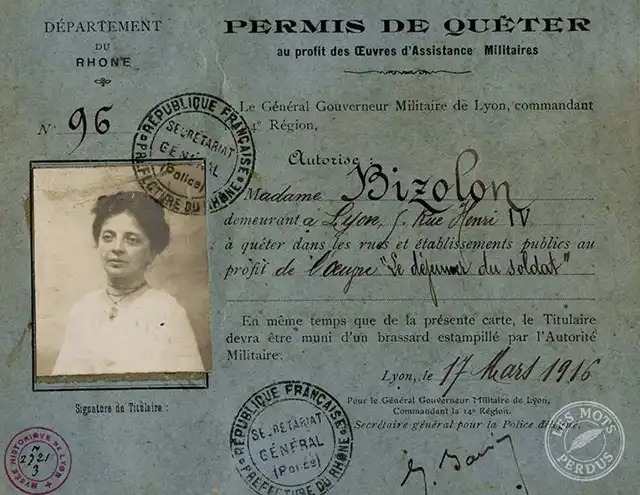 DÉPARTEMENT
DU
RHONE
PERMIS DE QUÊTER
au profit des Œuvres d'Assistance Militaires
N° 96
RÉPUBLIQUE FRANÇAISE
SECRÉTARIAT
GÉNÉRAL
(Police)
PRÉFECTURE DU RHÔNE
Le Général Gouverneur Militaire de Lyon, commandant
14e Région,
Autorise :
Madame Bizolon
demeurant à Lyon, 5 Rue Henri IV
à quêter dans les rues et établissements publics au
profit de l'œuvre "Le déjeuner du soldat"
En même temps que de la présente carte, le Titulaire
devra être muni d'un brassard estampillé par l'Autorité
Militaire.
Lyon, le 17 Mars 1916
Pour le Général Gouverneur Militaire de Lyon,
Commandant la 14e Région.
Secrétaire général pour la Police délégué.
Signature du Titulaire :
RÉPUBLIQUE FRANÇAISE
SECRÉTARIAT
GÉNÉRAL
(Police)
PRÉFECTURE DU RHÔNE
MUSÉE HISTORIQUE DE LYON
N
2721
3
LES MOTS
PERDUS